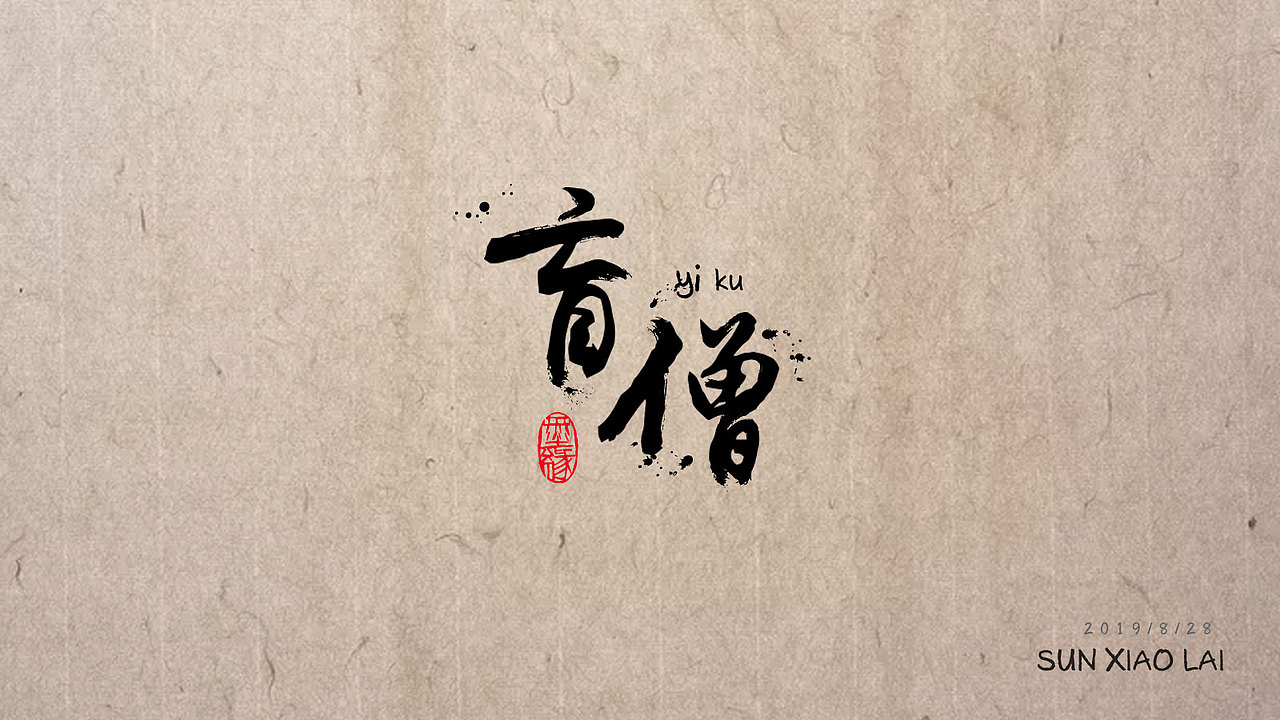 盲
yi ku
僧
2019/8/28
SUN XIAO LAI